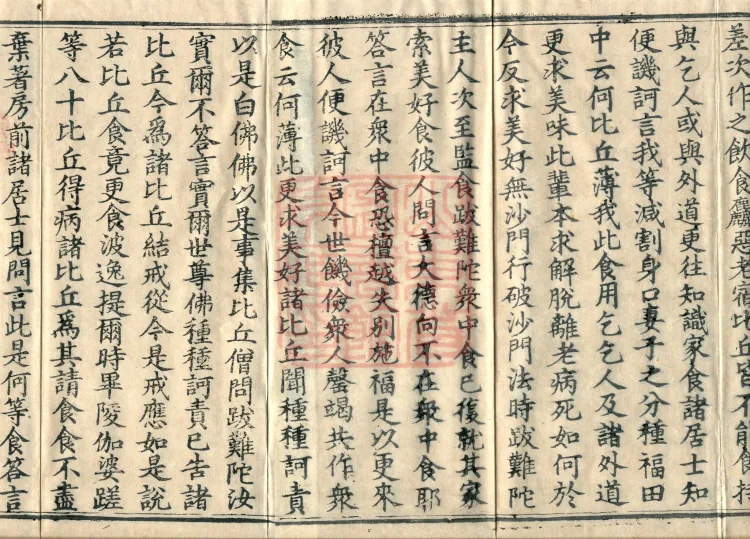 差次作之飲食麤惡老宿比丘皆不能食持
與乞人或與外道更往知識家食諸居士知
便譏訶言我等減割身口妻子之分種福田
中云何比丘薄我此食用乞乞人及諸外道
更求美味此輩本求解脫離老病死如何於
今反求美好無沙門行破沙門法時跋難陀
主人次至監食跋難陀衆中食已復就其家
索美好食彼人問言大德向不在衆中食耶
答言在衆中食恐檀越失別施福是以更來
彼人便譏訶言今世饑儉衆人罄竭共作衆
食云何薄此更求美好諸比丘聞種種訶責
以是白佛佛以是事集比丘僧問跋難陀汝
實爾不答言實爾世尊佛種種訶責已告諸
比丘今爲諸比丘結戒從今是戒應如是說
若比丘食竟更食波逸提爾時畢陵伽婆蹉
等八十比丘得病諸比丘爲其請食食不盡
棄著房前諸居士見問言此是何等食答言